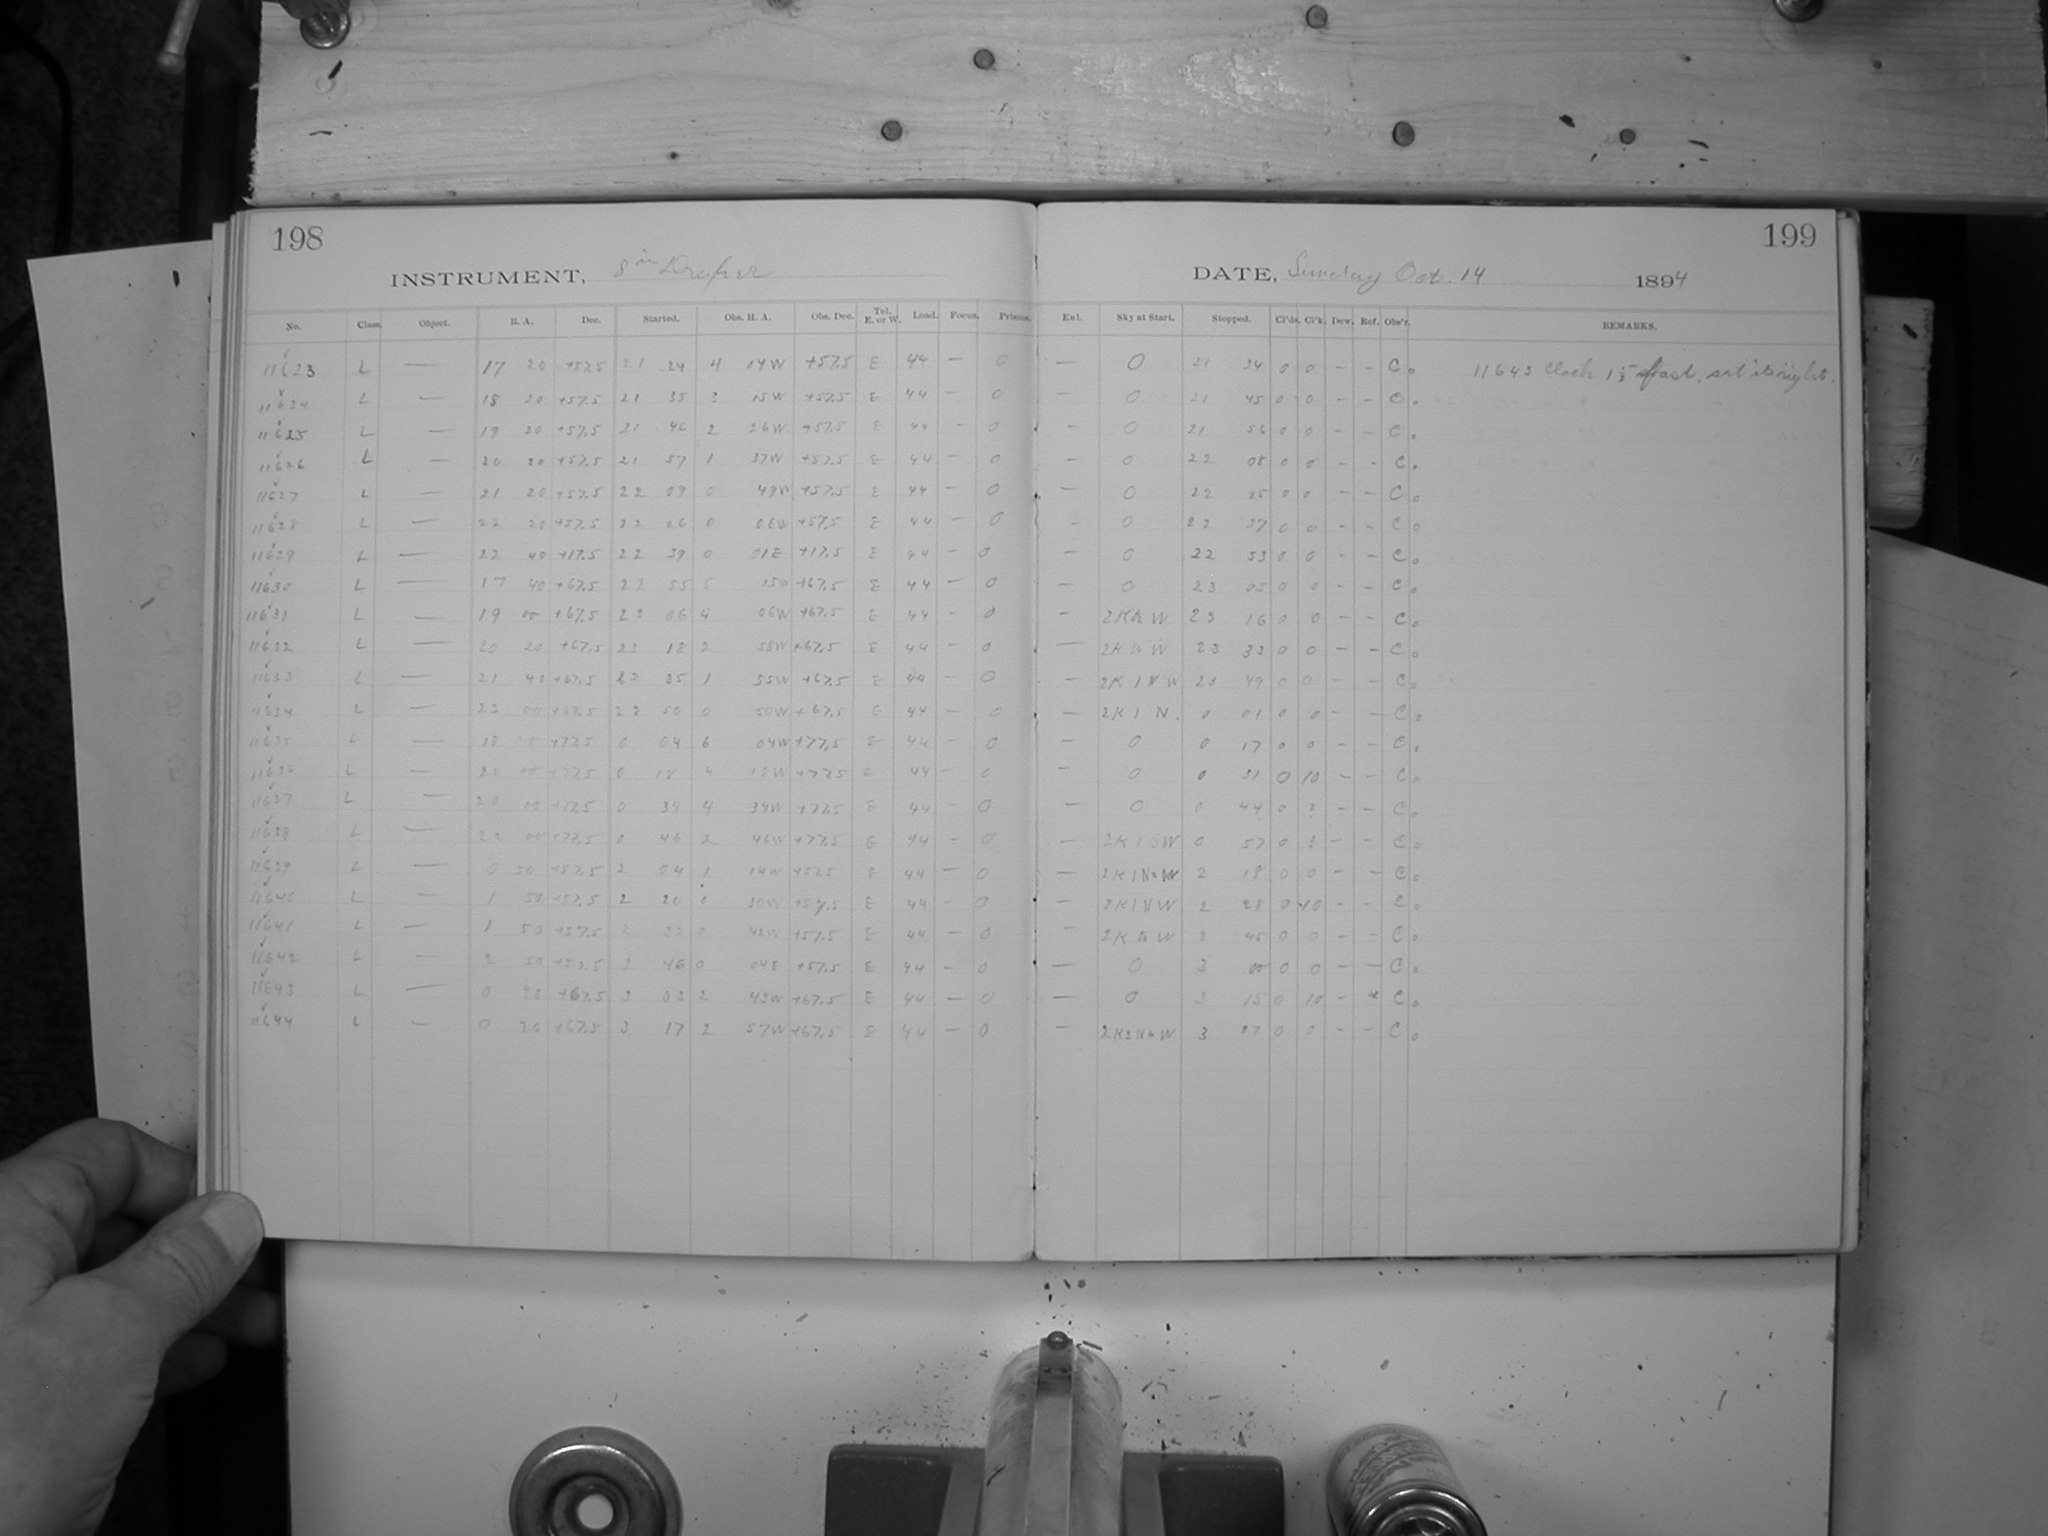 198
INSTRUMENT, 8 in Draper
No. Class. Object. R. A. Dec. Started. Obs. H. A. Obs. Dec. Tel. E. or W. Load. Focus. Prisms.
11623 L — 17 20 +57.5 21 24 4 14W +57.5 E 44 — 0
11624 L — 18 20 +57.5 21 35 3 15W +57.5 E 44 — 0
11625 L — 19 20 +57.5 21 46 2 26W +57.5 E 44 — 0
11626 L — 20 20 +57.5 21 57 1 37W +57.5 E 44 — 0
11627 L — 21 20 +57.5 22 09 0 49W +57.5 E 44 — 0
11628 L — 22 20 +57.5 22 26 0 06W +57.5 E 44 — 0
11629 L — 22 40 +17.5 22 39 0 01E +17.5 E 44 — 0
11630 L — 17 40 +67.5 22 55 5 15W +67.5 E 44 — 0
11631 L — 19 00 +67.5 23 06 4 06W +67.5 E 44 — 0
11632 L — 20 20 +67.5 23 18 2 58W +67.5 E 44 — 0
11633 L — 21 40 +67.5 23 35 1 55W +67.5 E 44 — 0
11634 L — 23 00 +67.5 23 50 0 50W +67.5 E 44 — 0
11635 L — 18 00 +77.5 0 04 6 04W +77.5 E 44 — 0
11636 L — 20 00 +77.5 0 18 4 18W +77.5 E 44 — 0
11637 L — 20 00 +77.5 0 34 4 34W +77.5 E 44 — 0
11638 L — 22 00 +77.5 0 46 2 46W +77.5 E 44 — 0
11639 L — 0 50 +57.5 2 04 1 14W +57.5 E 44 — 0
11640 L — 1 50 +57.5 2 20 0 30W +57.5 E 44 — 0
11641 L — 1 50 +57.5 2 32 0 42W +57.5 E 44 — 0
11642 L — 2 50 +57.5 2 46 0 04E +57.5 E 44 — 0
11643 L — 0 20 +67.5 3 03 2 43W +67.5 E 44 — 0
11644 L — 0 20 +67.5 3 17 2 57W +67.5 E 44 — 0
199
DATE, Sunday Oct. 14 1894
Enl. Sky at Start. Stopped. Cl'ds. Cl'k. Dew. Ref. Obs'r. REMARKS.
— 0 21 34 0 0 — — C. 11643 Clock fast, set is right.
— 0 21 45 0 0 — — C.
— 0 21 56 0 0 — — C.
— 0 22 08 0 0 — — C.
— 0 22 25 0 0 — — C.
— 0 22 37 0 0 — — C.
— 0 22 53 0 0 — — C.
— 0 23 05 0 0 — — C.
— 2K W 23 16 0 0 — — C.
— 2K W 23 33 0 0 — — C.
— 2K 1 N W 23 49 0 0 — — C.
— 2K 1 N. 0 01 0 0 — — C.
— 0 0 17 0 0 — — C.
— 0 0 31 0 10 — — C.
— 0 0 44 0 ? — — C.
— 2K 1 SW 0 57 0 ? — — C.
— 2K 1 W 2 18 0 0 — — C.
— 2K 1 NW 2 28 0 10 — — C.
— 2K W 2 45 0 0 — — C.
— 0 3 00 0 0 — — C.
— 0 3 15 0 10 — * C.
— 2K 2 W 3 27 0 0 — — C.